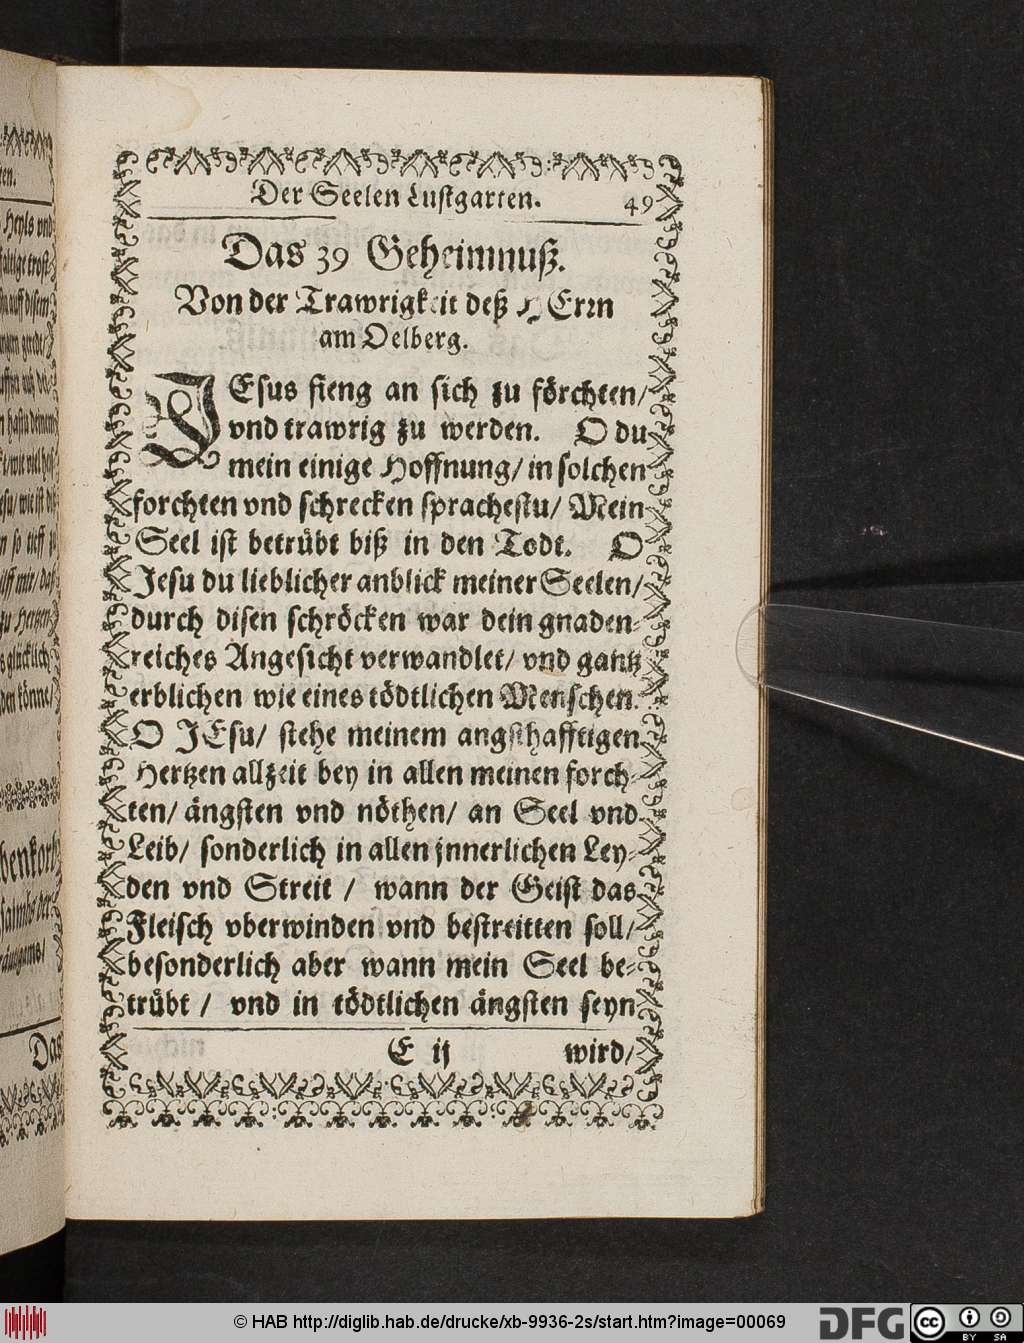 Der Seelen Lustgarten. 49
Das 39 Geheimnuß.
Von der Trawrigkeit deß HErrn
am Oelberg.
JEsus fieng an sich zu förchten/
vnd trawrig zu werden. O du
mein einige Hoffnung/ in solchen
forchten vnd schrecken sprachestu/ Mein
Seel ist betrübt biß in den Todt. O
Jesu du lieblicher anblick meiner Seelen/
durch disen schröcken war dein gnaden-
reiches Angesicht verwandlet/ vnd gantz
erblichen wie eines tödtlichen Menschen.
O JEsu/ stehe meinem angsthafftigen
Hertzen allzeit bey in allen meinen forch-
ten/ ängsten vnd nöthen/ an Seel vnd
Leib/ sonderlich in allen jnnerlichen Ley-
den vnd Streit / wann der Geist das
Fleisch vberwinden vnd bestreitten soll/
besonderlich aber wann mein Seel be-
trübt / vnd in tödtlichen ängsten seyn
E ij wird/
ten.
Heyls vnd
trost-
auff disem
hastu deinem
wie viel
wie ist
so tieff
mir/ das
zu Hertzen
glücklich
den könne/
der
Das
© HAB http://diglib.hab.de/drucke/xb-9936-2s/start.htm?image=00069
DFG
cc
BY SA